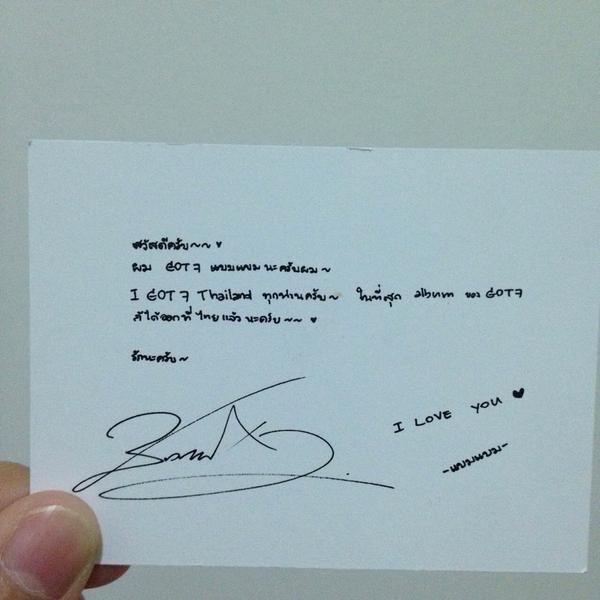 สวัสดีครับ~~ ♥
ผม GOT7 แบมแบม นะครับผม~
I GOT7 Thailand ทุกท่านครับ~ ในที่สุด album ของ GOT7
ก็ได้ออกที่ไทยแล้วนะครับ~~ ♥
รักนะครับ~
I LOVE YOU ♥
-แบมแบม-